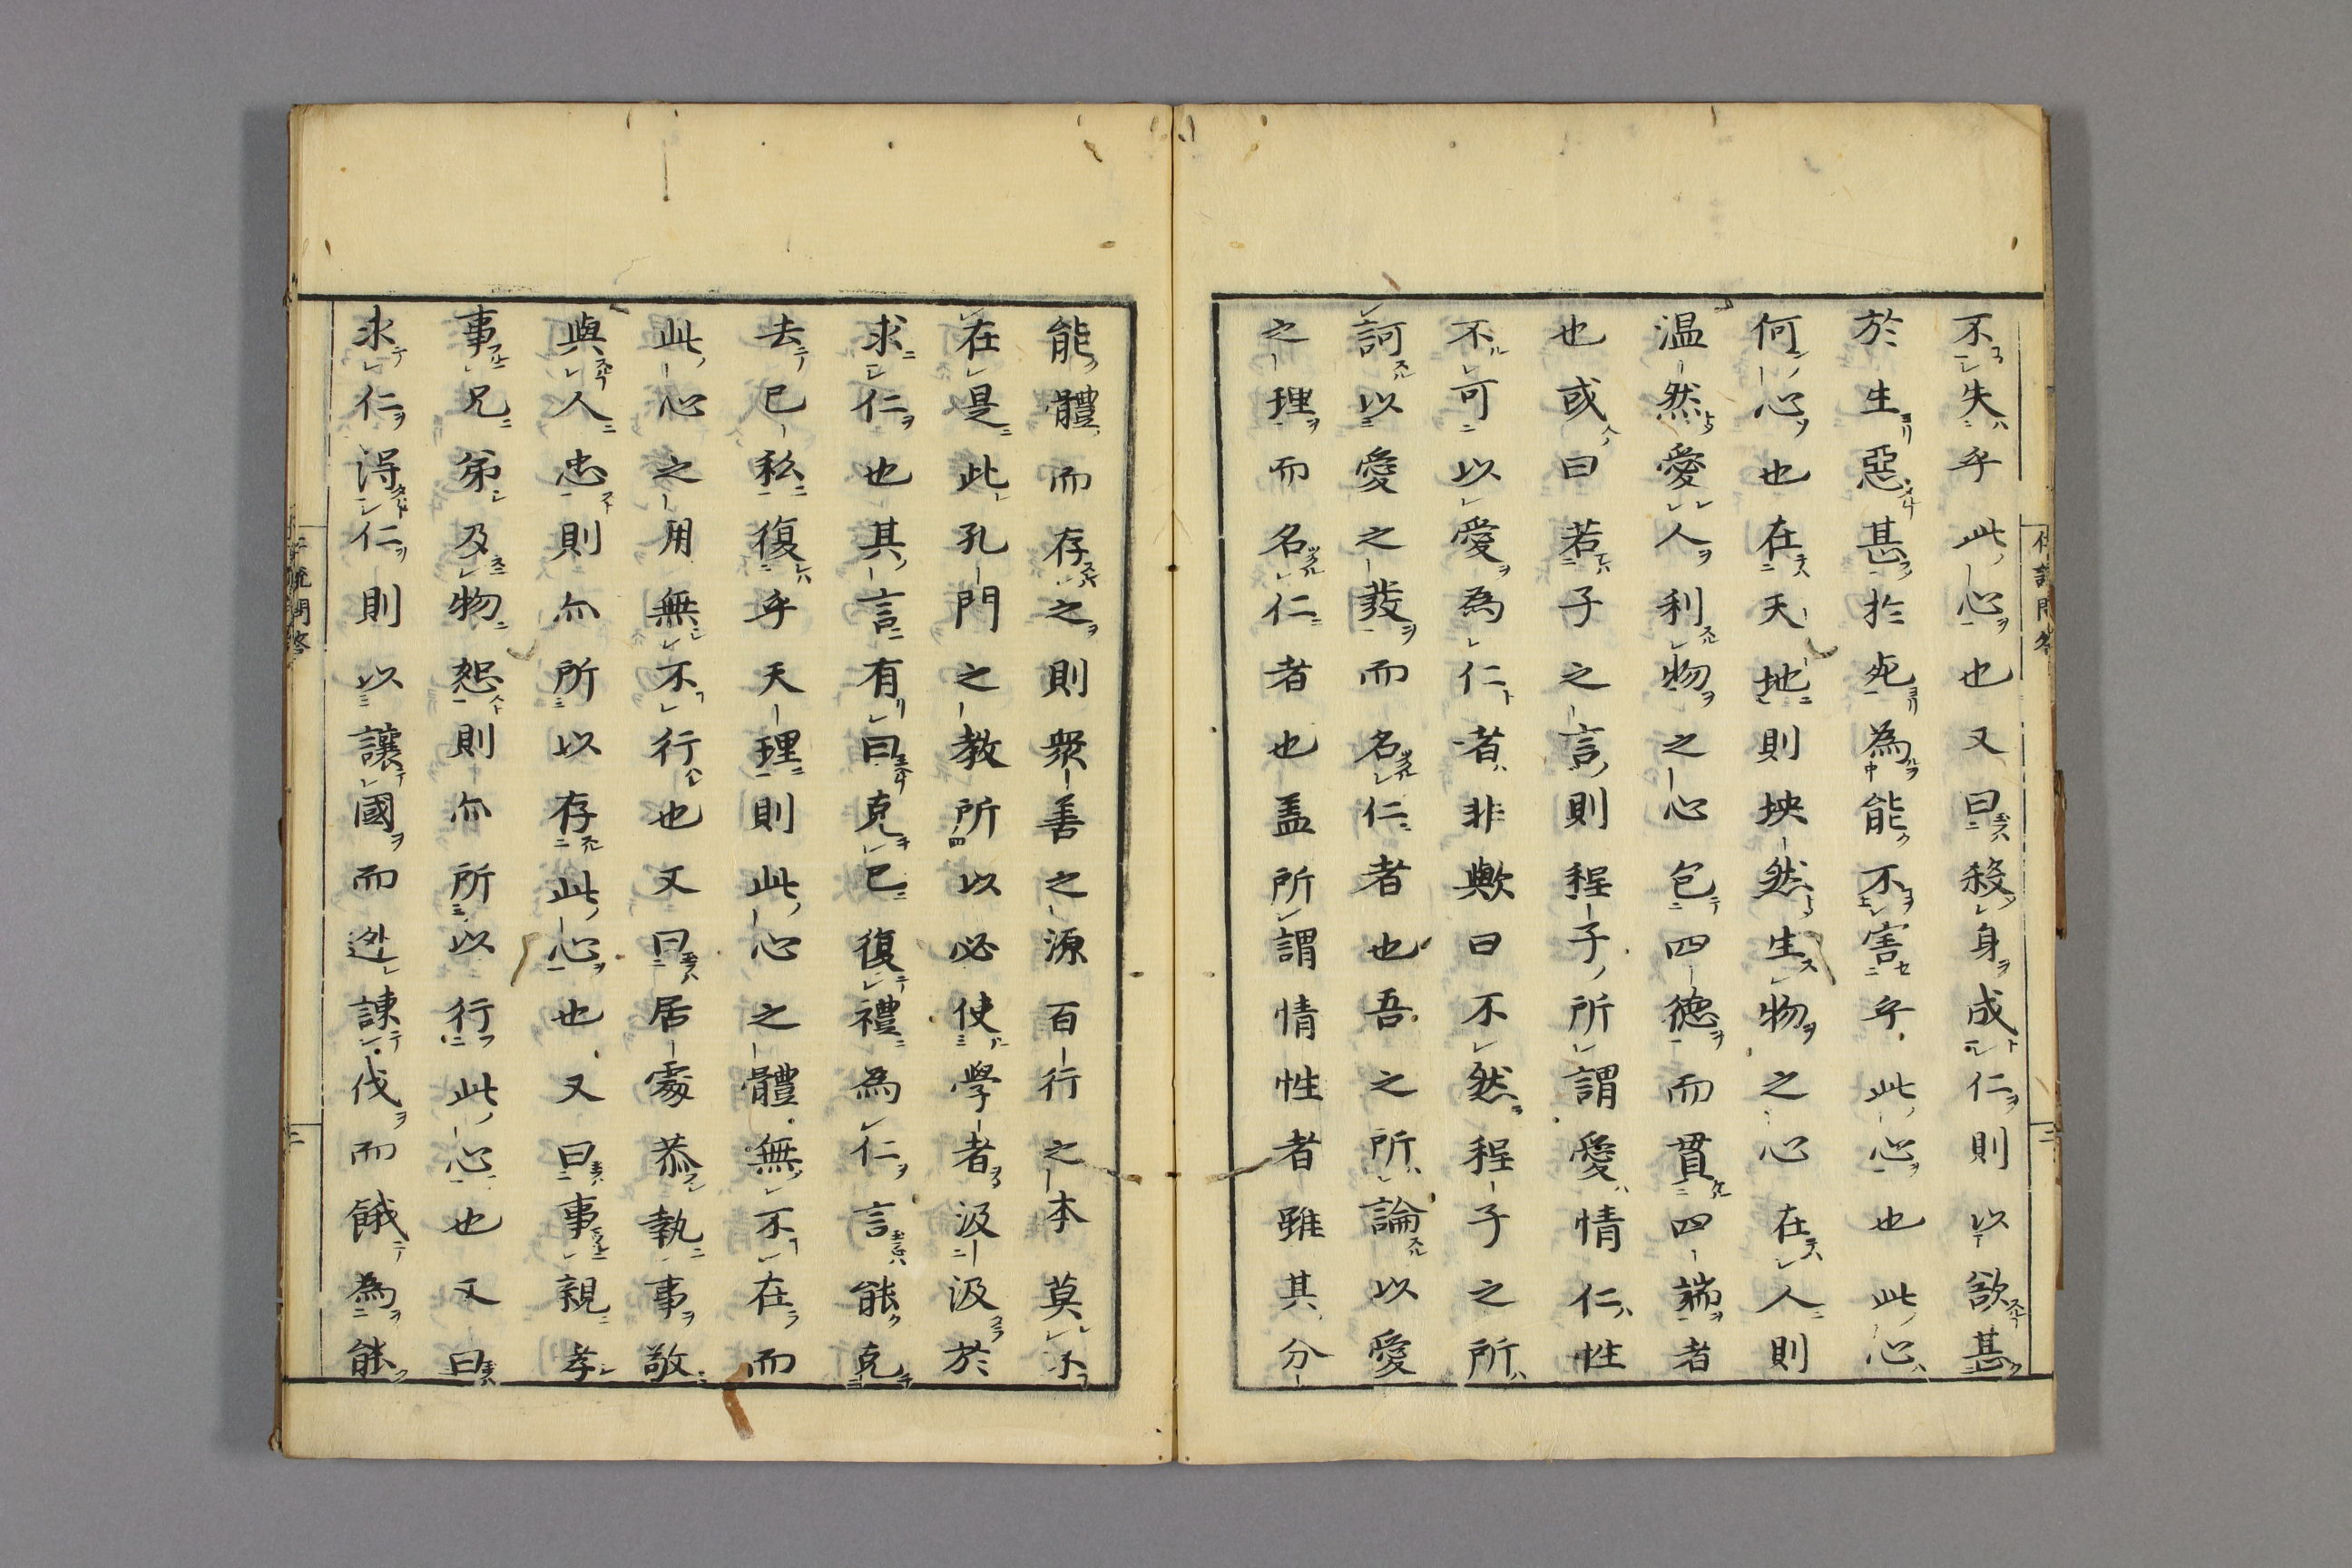 不失乎此心也又曰殺身成仁則以欲甚
於生惡甚於死為能不害乎此心也此心
何心也在天地則坱然生物之心在人則
温然愛人利物之心包四德而貫四端者
也或曰若子之言則程子所謂愛情仁性
不可以愛為仁者非歟曰不然程子之所
訶以愛之發而名仁者也吾之所論以愛
之理而名仁者也盖所謂情性者雖其分
能體而存之則衆善之源百行之本莫不
在是此孔門之教所以必使學者汲汲於
求仁也其言有曰克己復禮為仁言能克
去己私復乎天理則此心之體無不在而
此心之用無不行也又曰居處恭執事敬
與人忠則亦所以存此心也又曰事親孝
事兄弟及物恕則亦所以行此心也又曰
求仁得仁則以讓國而逃諫伐而餓為能